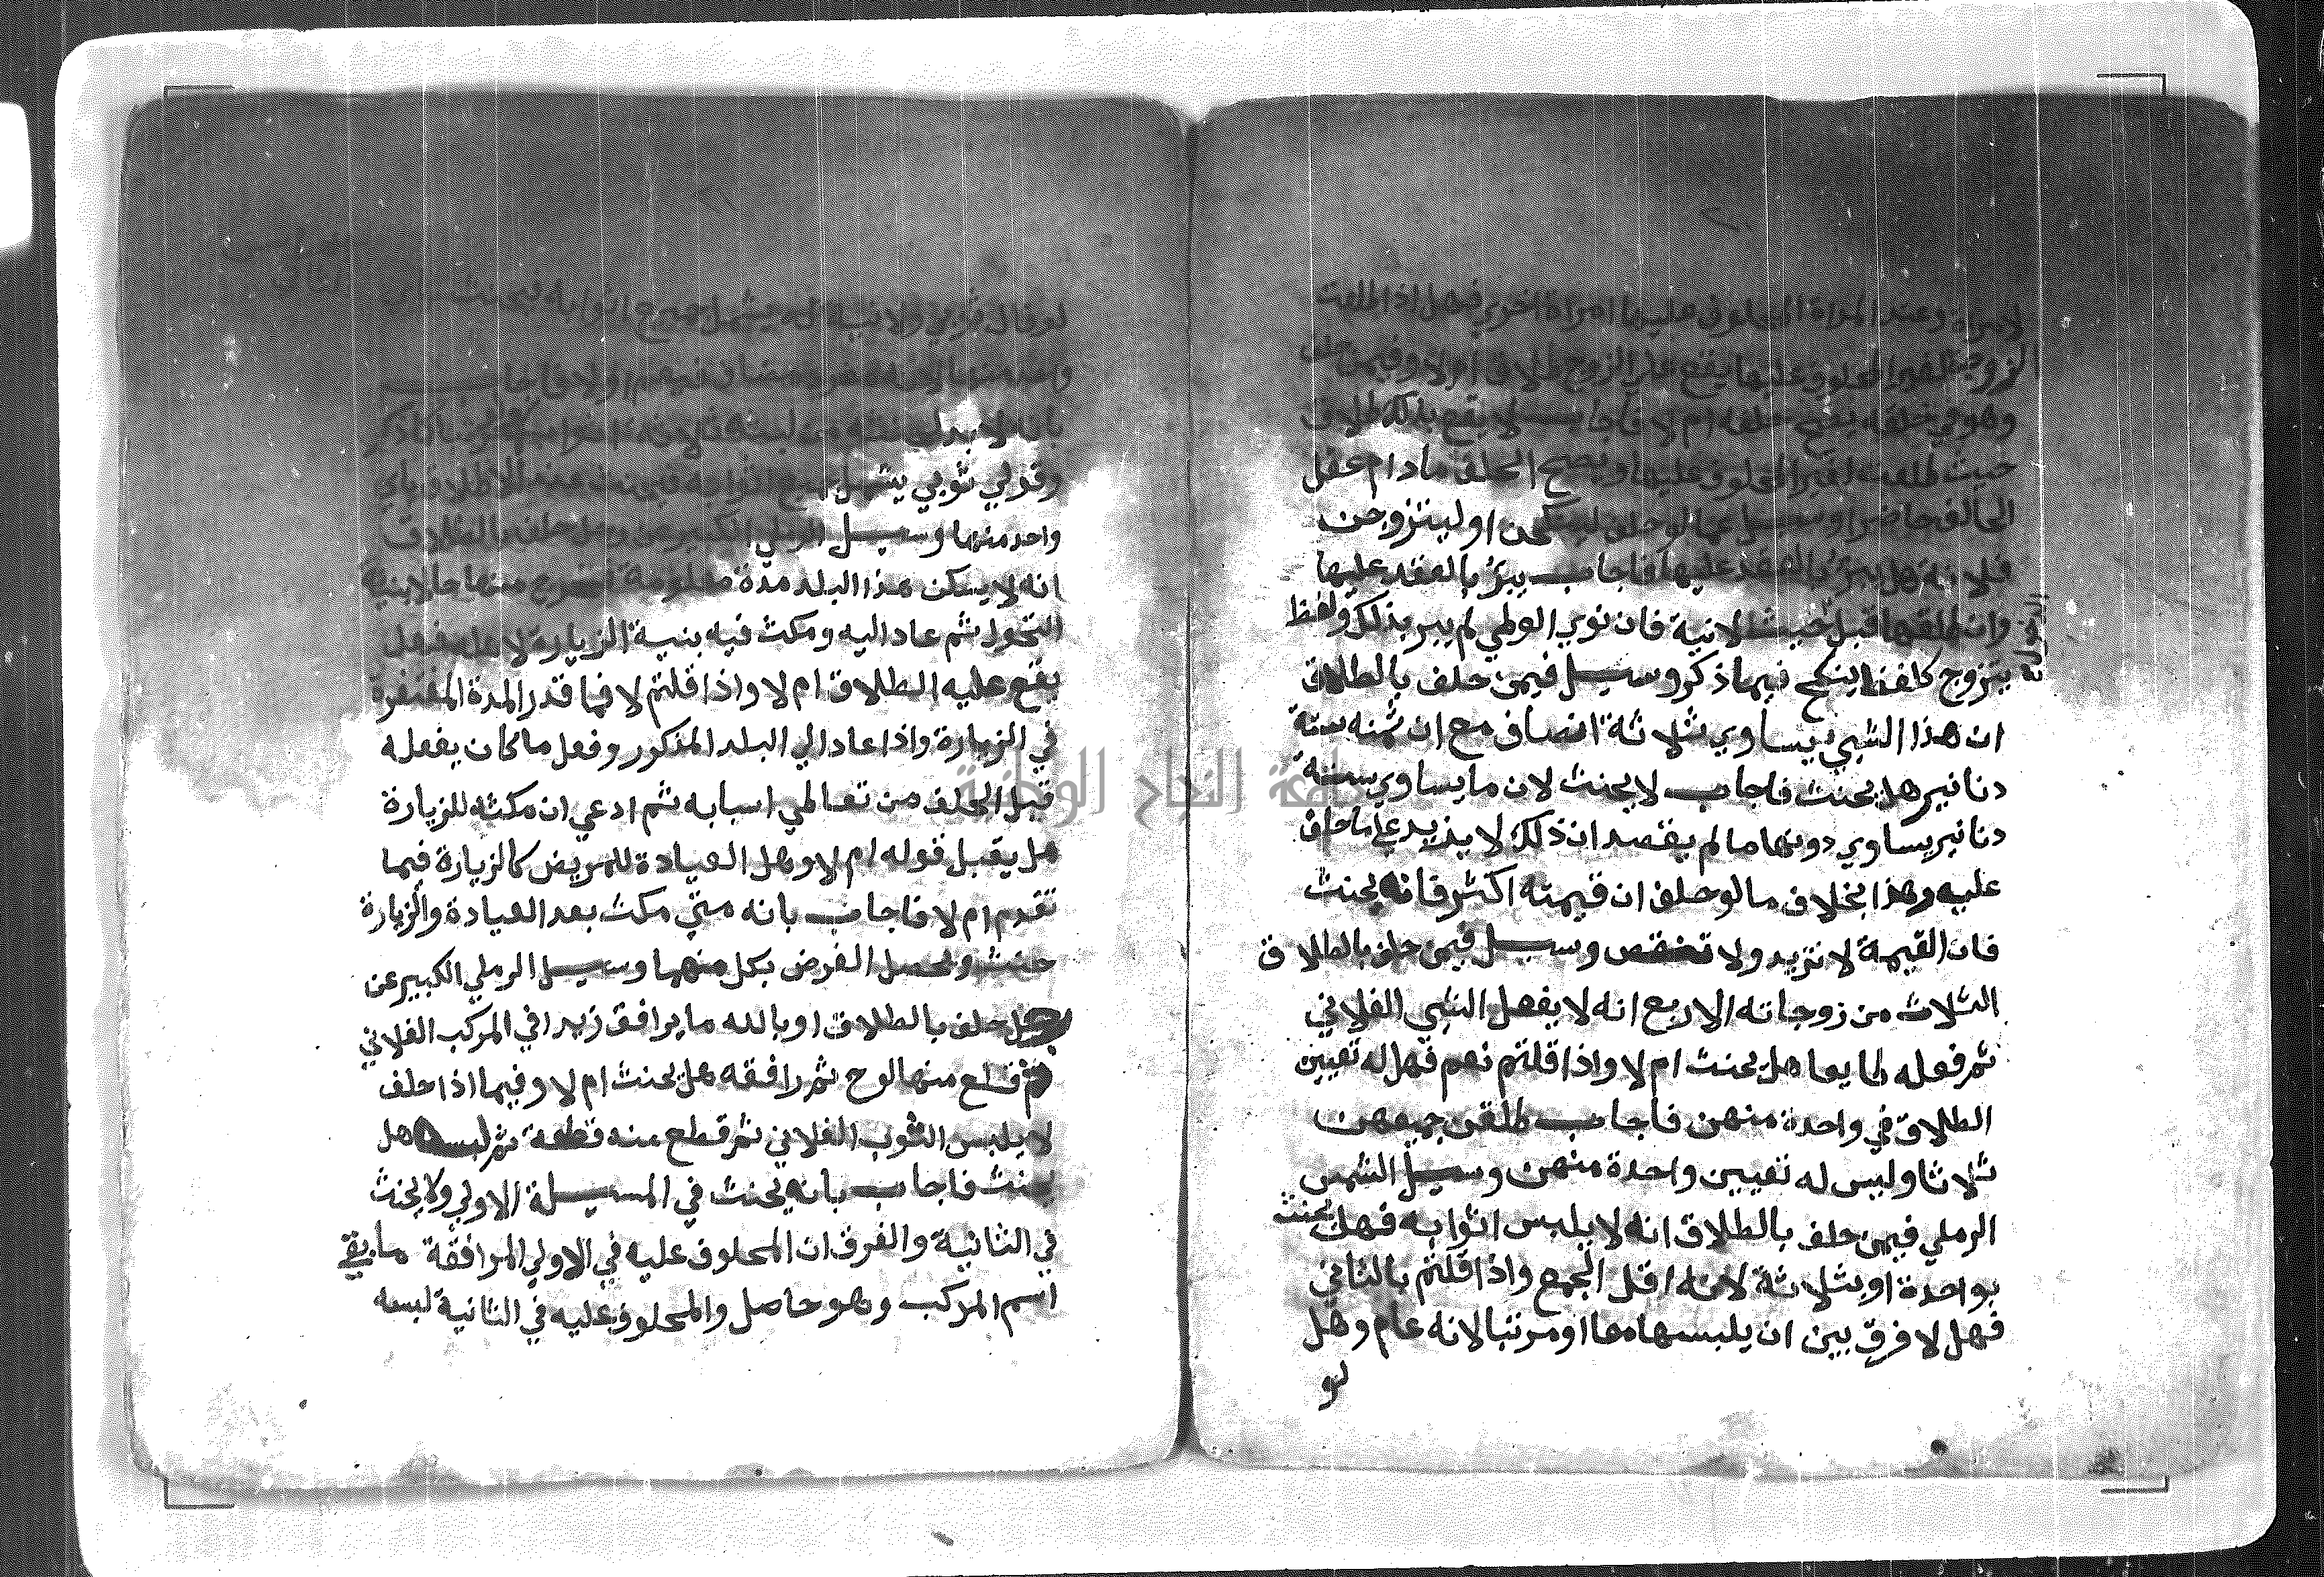 لامراة وعند المراة المحلوف عليها امراة اخري فهل اذا طلقت
الزوجة الغير المحلوف عليها يقع علي الزوج طلاق ام لا وفيمن حلف
وهو في حلقه يقع حلفه ام لا فاجاب لا يقع بذلك طلاق
حيث طلقت الغير المحلوف عليها ويصح الحلف مادام عقل
الحالف حاضرا وسيل عما لو حلف لينكحن او ليتزوجن
فلانة هل يبرّ بالعقد عليها فاجاب يبرّ بالعقد عليها
وان طلقها قبل حيث لا نية فان نوي الوطي لم يبر بذلك ولفظ
يتزوج كلفظ اينكح فيما ذكر وسيل فيمن حلف بالطلاق
ان هذا الشي يساوي ثلاثة انصاف مع ان ثمنه ستة
دنانير هل يحنث فاجاب لا يحنث لان ما يساوي ستة
دنانير يساوي دونها ما لم يقصد ان ذلك لا يزيد علي ما حلف
عليه وهذا بخلاف ما لو حلف ان قيمته اكثر فانه يحنث
فان القيمة لا تزيد ولا تنقص وسيل فيمن حلف بالطلاق
الثلاث من زوجاته الاربع انه لا يفعل الشي الفلاني
ثم فعله طايعا هل يحنث ام لا واذا قلتم نعم فهل له تعيين
الطلاق في واحدة منهن فاجاب طلقن جميعهن
ثلاثا وليس له تعيين واحدة منهن وسيل الشمس
الرملي فيمن حلف بالطلاق انه لا يلبس اثوابه فهل يحنث
بواحدة او بثلاثة لانه اقل الجمع واذا قلتم بالثاني
فهل لا فرق بين ان يلبسها معا او مرتبا لانه عام وهل
لو
لو قال ثوبي ولا نية له يشمل جميع اثوابه فيحنث
واحد منها
بانه لا بد
وقولي ثوبي يشمل جميع اثوابه فيحنث عند الاطلاق باي
واحد منها وسيل الرملي الكبير عن رجل حلف بالطلاق
انه لا يسكن هذا البلد مدة معلومة فخرج منها حالا بنية
التحول ثم عاد اليه ومكث فيه بنية الزيارة لاهله فهل
يقع عليه الطلاق ام لا واذا قلتم لا فما قدر المدة المغتفرة
في الزيارة واذا عاد الي البلد المذكور وفعل ما كان يفعله
قبل الحلف من تعاطي اسبابه ثم ادعي ان مكثه للزيارة
هل يقبل قوله ام لا وهل العيادة للمريض كالزيارة فيما
تقدم ام لا فاجاب بانه متي مكث بعد العيادة والزيارة
حنث ويحصل الغرض بكل منهما وسيل الرملي الكبير عن
رجل حلف بالطلاق او بالله ما يرافق زيدا في المركب الفلاني
ثم قلع منها لوح ثم رافقه هل يحنث ام لا وفيما اذا حلف
لا يلبس الثوب الفلاني ثم قطع منه قطعة ثم لبسه هل
يحنث فاجاب بانه يحنث في المسيلة الاولي ولا يحنث
في الثانية والفرق ان المحلوف عليه في الاولي المرافقة ما بقي
اسم المركب وهو حاصل والمحلوف عليه في الثانية لبسه
جامعة النجاح الوطنية